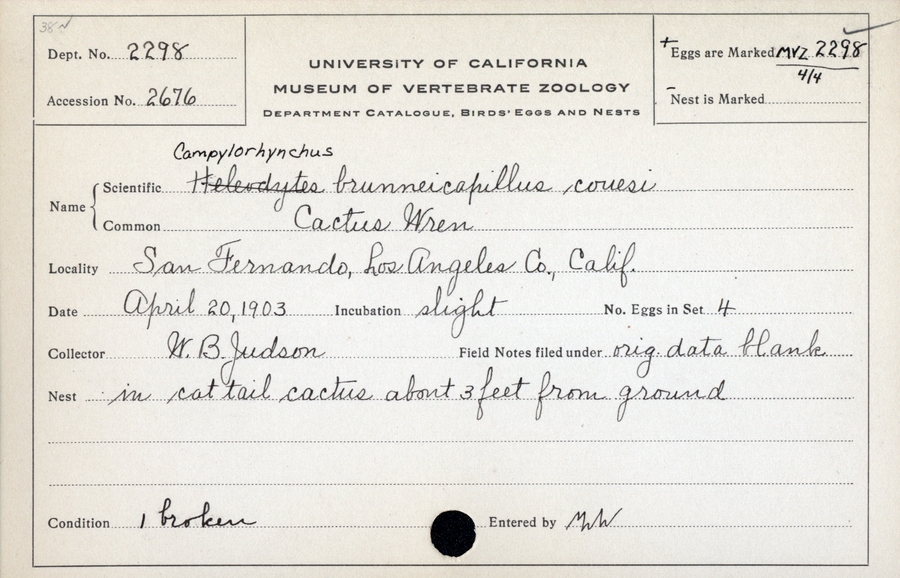 Dept. No. 2298
Accession No. 2676
UNIVERSITY OF CALIFORNIA
MUSEUM OF VERTEBRATE ZOOLOGY
DEPARTMENT CATALOGUE, BIRDS' EGGS AND NESTS
+ Eggs are Marked MVZ 2298
4/4
- Nest is Marked
Campylorhynchus
Name Scientific Heleodytes brunneicapillus couesi
Common Cactus Wren
Locality San Fernando, Los Angeles Co., Calif.
Date April 20, 1903 Incubation slight No. Eggs in Set 4
Collector W. B. Judson Field Notes filed under orig. data blank
Nest in cat tail cactus about 3 feet from ground
Condition 1 broken Entered by